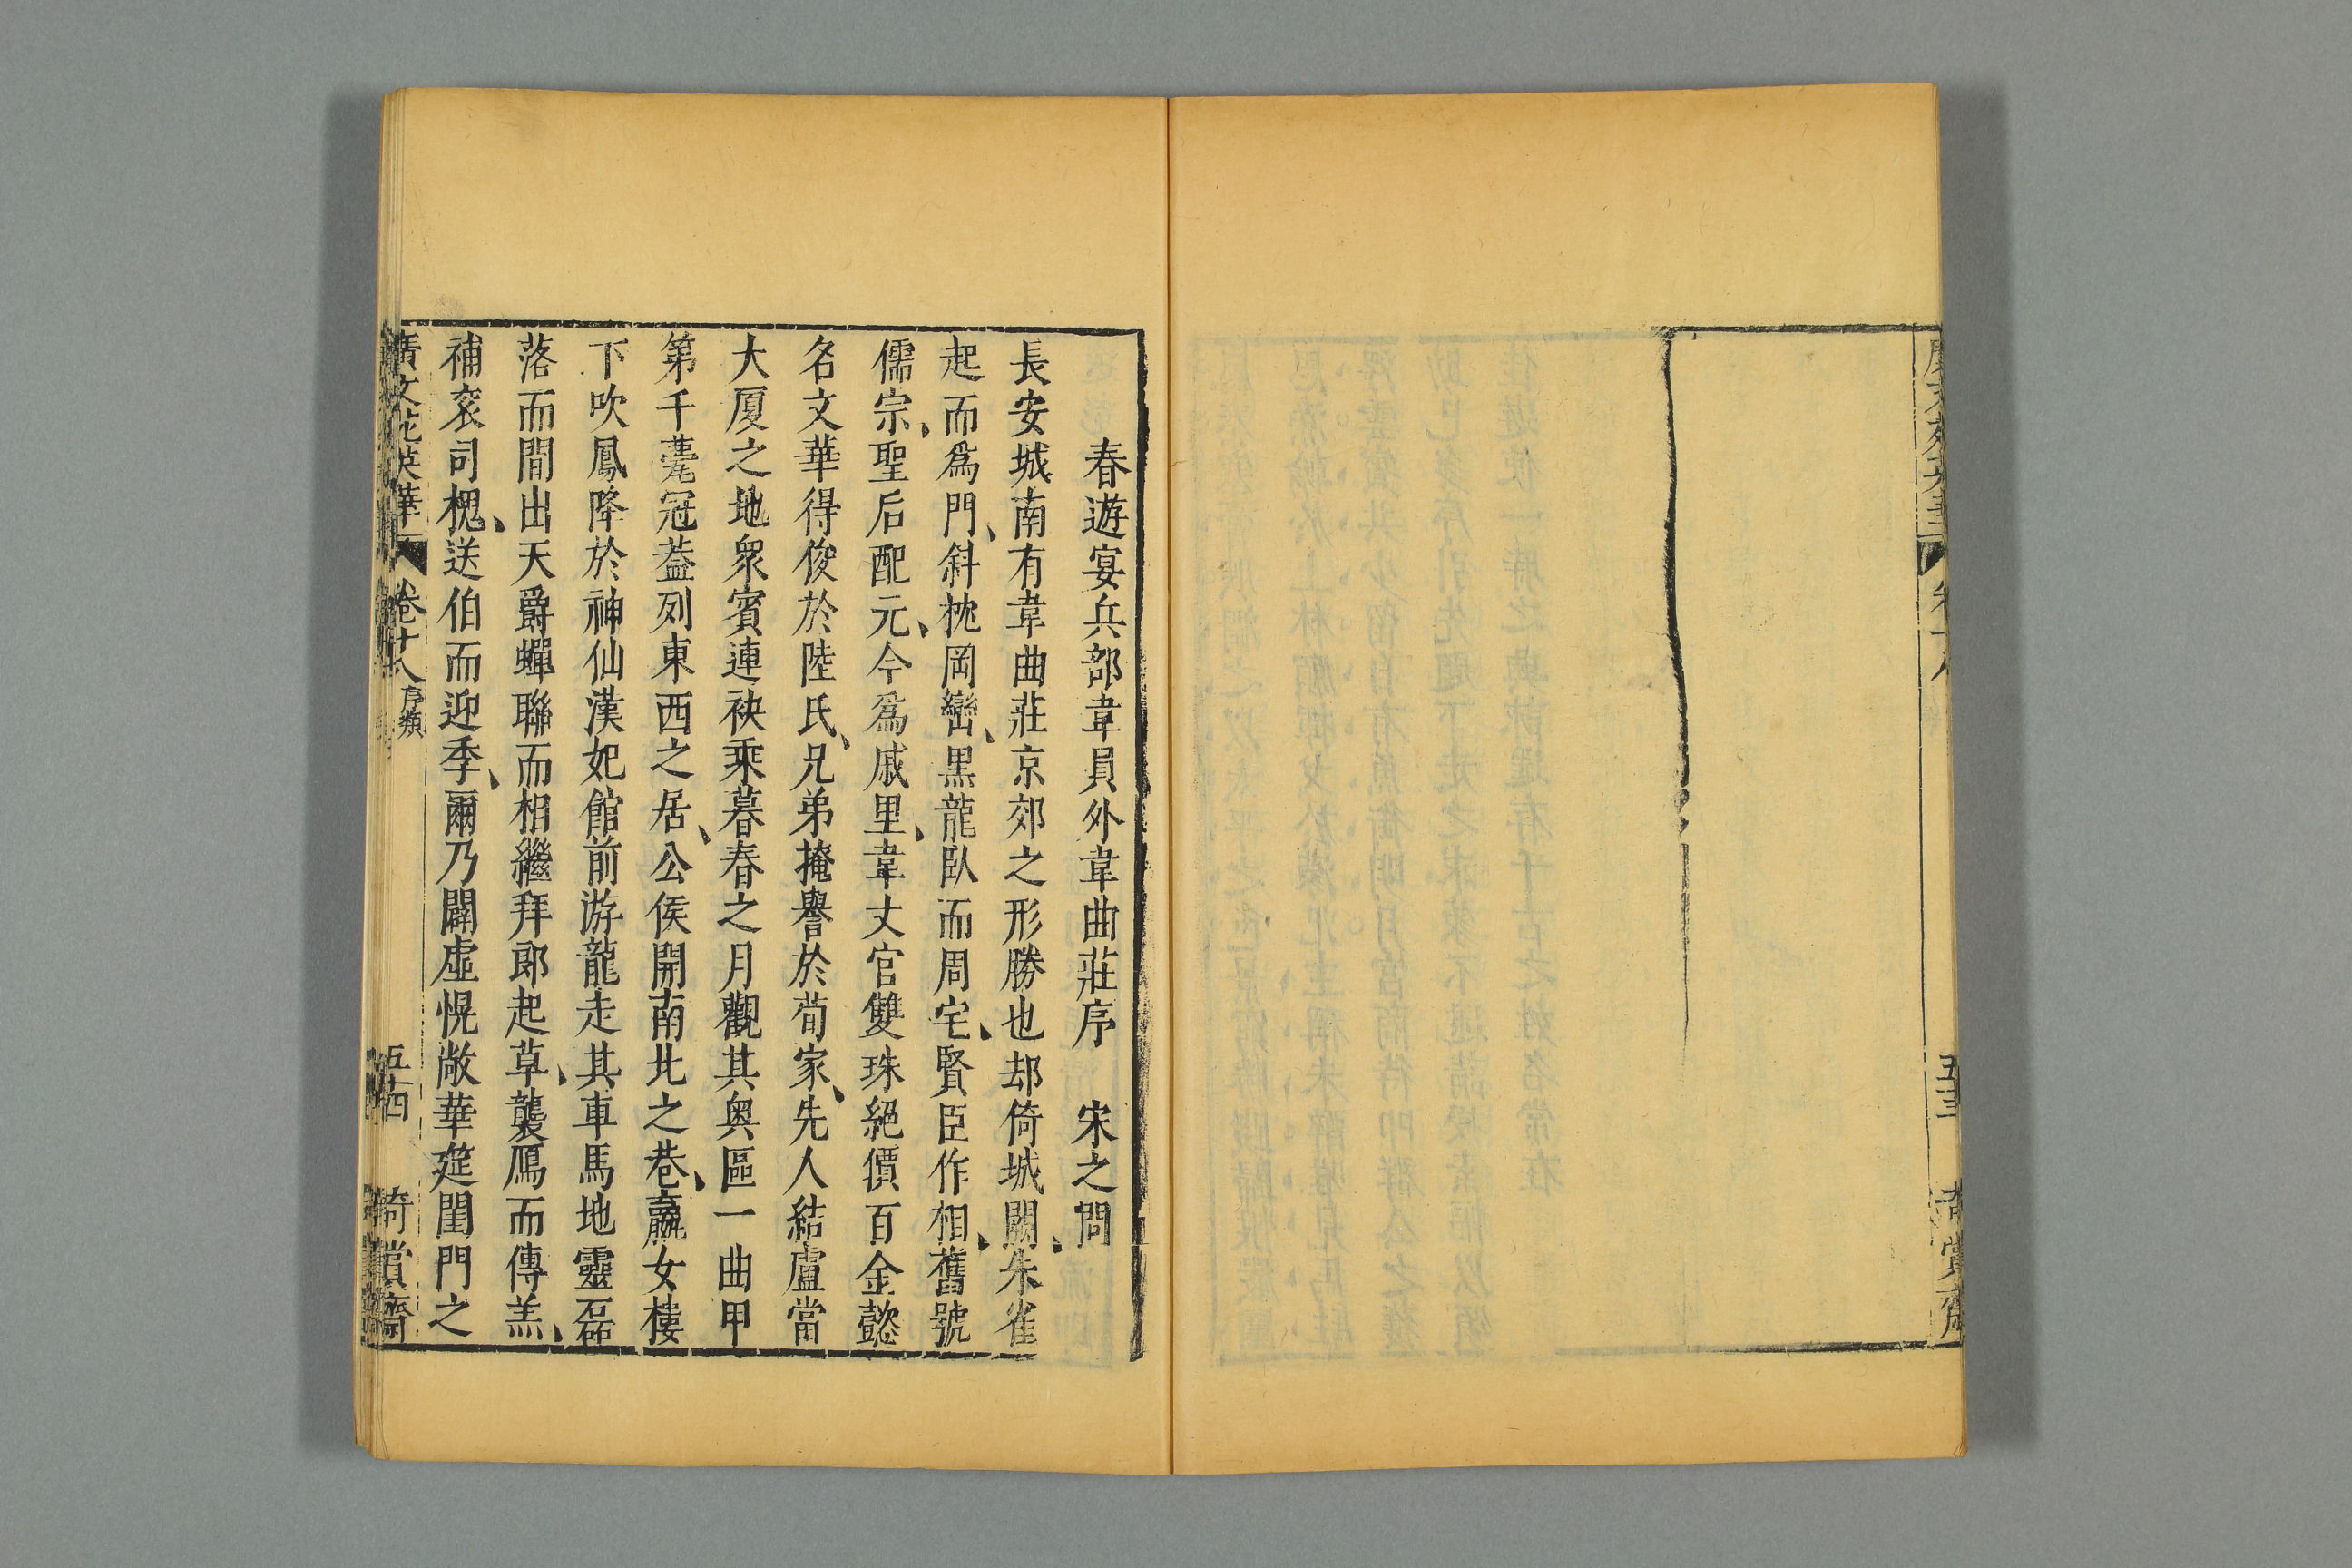 春遊宴兵部韋員外韋曲莊序　宋之問
長安城南有韋曲莊京郊之形勝也却倚城闕、朱雀
起而爲門、斜枕岡巒、黒龍臥而周宅、賢臣作相、舊號
儒宗、聖后配元、今爲戚里、韋丈官雙珠絕價百金懿
名文華得俊於陸氏、兄弟掩譽於荀家、先人結廬當
大厦之地衆賓連袂乘暮春之月觀其奥區一曲甲
第千甍冠葢列東西之居、公侯開南北之巷、嬴女樓
下吹鳳降於神仙漢妃館前游龍走其車馬地靈磊
落而間出天爵蟬聯而相繼拜郎起草、襲鴈而傳羔、
補衮司槐、送伯而迎季、爾乃闢虛幌敞華筵閨門之
廣文苑英華　卷十八　序類　五十四　奇賞齋